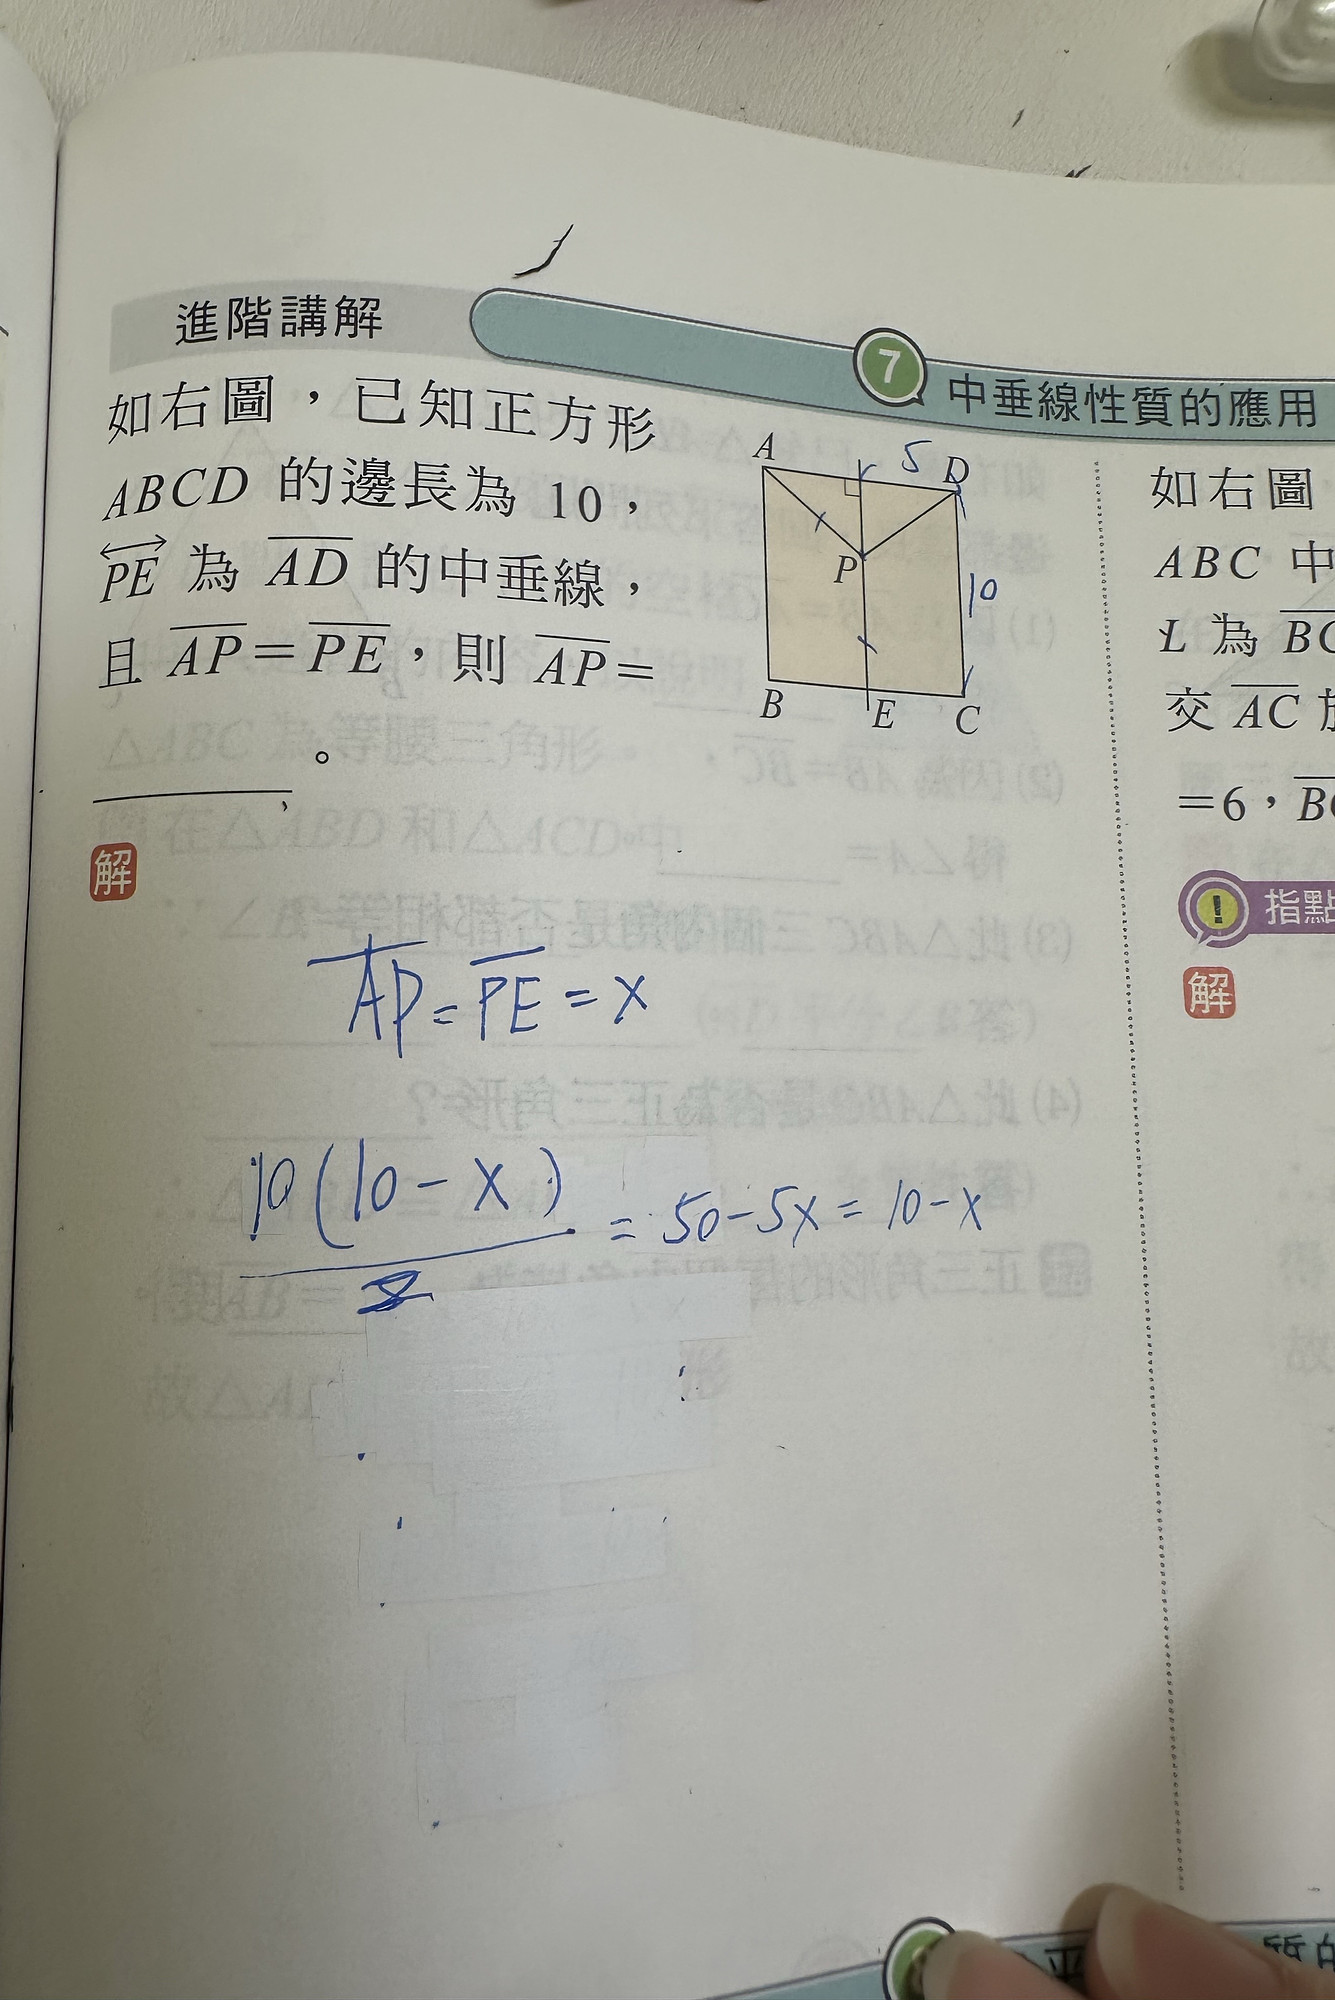 進階講解
7 中垂線性質的應用
如右圖，已知正方形
ABCD 的邊長為 10，
PE 為 AD 的中垂線，
且 AP=PE，則 AP=
。
A
5
D
P
10
B
E
C
解
AP = PE = x
10(10-x)
2
= 50-5x = 10-x
如右圖
ABC 中
L 為 BC
交 AC 於
=6，BC
! 指點
解